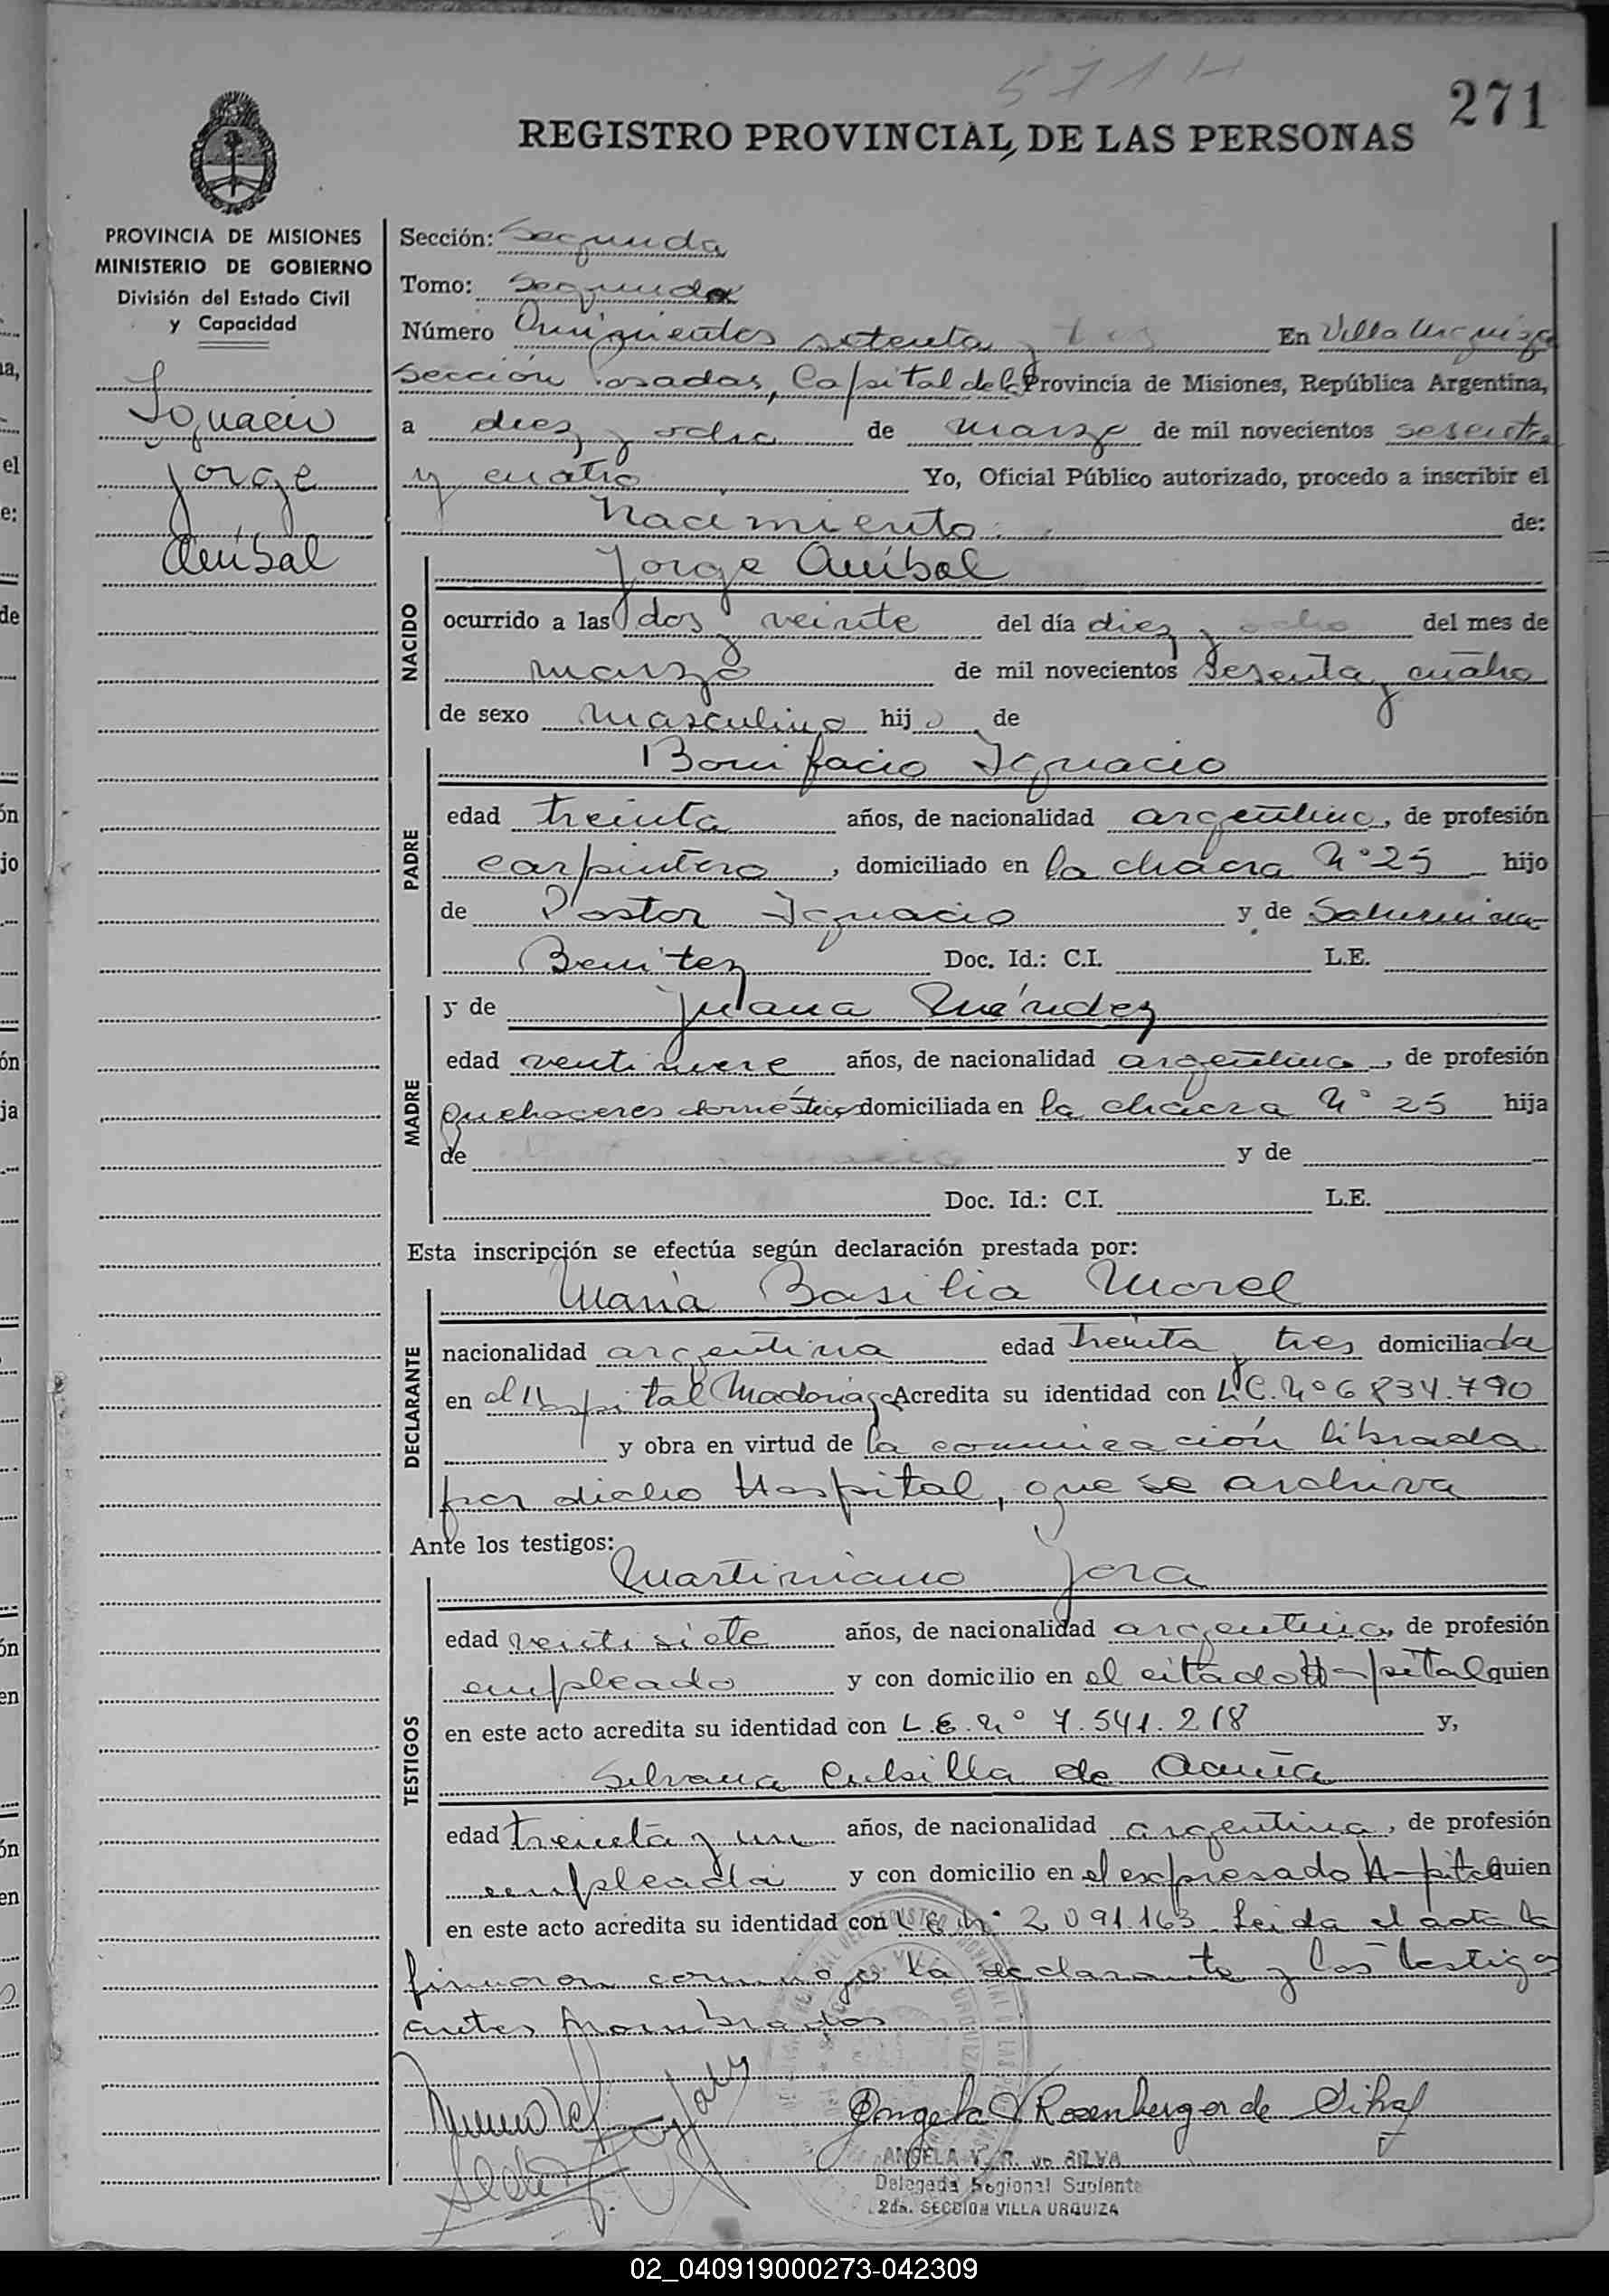 271
REGISTRO PROVINCIAL DE LAS PERSONAS
PROVINCIA DE MISIONES
MINISTERIO DE GOBIERNO
División del Estado Civil
y Capacidad
Ignacio
Jorge
Aníbal
Sección: Segunda
Tomo: Segundo
Número Quinientos setenta y En Villa Urquiza
Sección Posadas, Capital de la Provincia de Misiones, República Argentina,
a diez y ocho de marzo de mil novecientos sesenta
y cuatro Yo, Oficial Público autorizado, procedo a inscribir el
nacimiento de:
Jorge Aníbal
NACIDO
ocurrido a las dos y veinte del día diez y ocho del mes de
marzo de mil novecientos sesenta y cuatro
de sexo masculino hijo de
Bonifacio Ignacio
PADRE
edad treinta años, de nacionalidad argentino, de profesión
carpintero, domiciliado en la chacra Nº 25 hijo
de Pastor Ignacio y de Saturnina
Benitez Doc. Id.: C.I. L.E.
MADRE
y de Juana Méndez
edad ventinueve años, de nacionalidad argentina, de profesión
quehaceres domésticos domiciliada en la chacra Nº 25 hija
de y de
Doc. Id.: C.I. L.E.
Esta inscripción se efectúa según declaración prestada por:
María Basilia Morel
DECLARANTE
nacionalidad argentina edad treinta y tres domiciliada
en el Hospital Madariaga Acredita su identidad con L.C. Nº 6834.790
y obra en virtud de la comunicación librada
por dicho Hospital, que se archiva
Ante los testigos:
Martiniano Jara
TESTIGOS
edad veintisiete años, de nacionalidad argentina, de profesión
empleado y con domicilio en el citado Hospital quien
en este acto acredita su identidad con L.E. Nº 7.541.218 y,
Silvana de Acuña
edad treinta y un años, de nacionalidad argentina, de profesión
empleada y con domicilio en el expresado Hospital quien
en este acto acredita su identidad con Nº 2.091.163 Leida el acta la
firmaron conmigo la declarante y los testigos
antes nombrados
Angela V Rosenberger de Silva
ANGELA V. R. DE SILVA
Delegada Regional Suplente
2da. SECCION VILLA URQUIZA
02_040919000273-042309